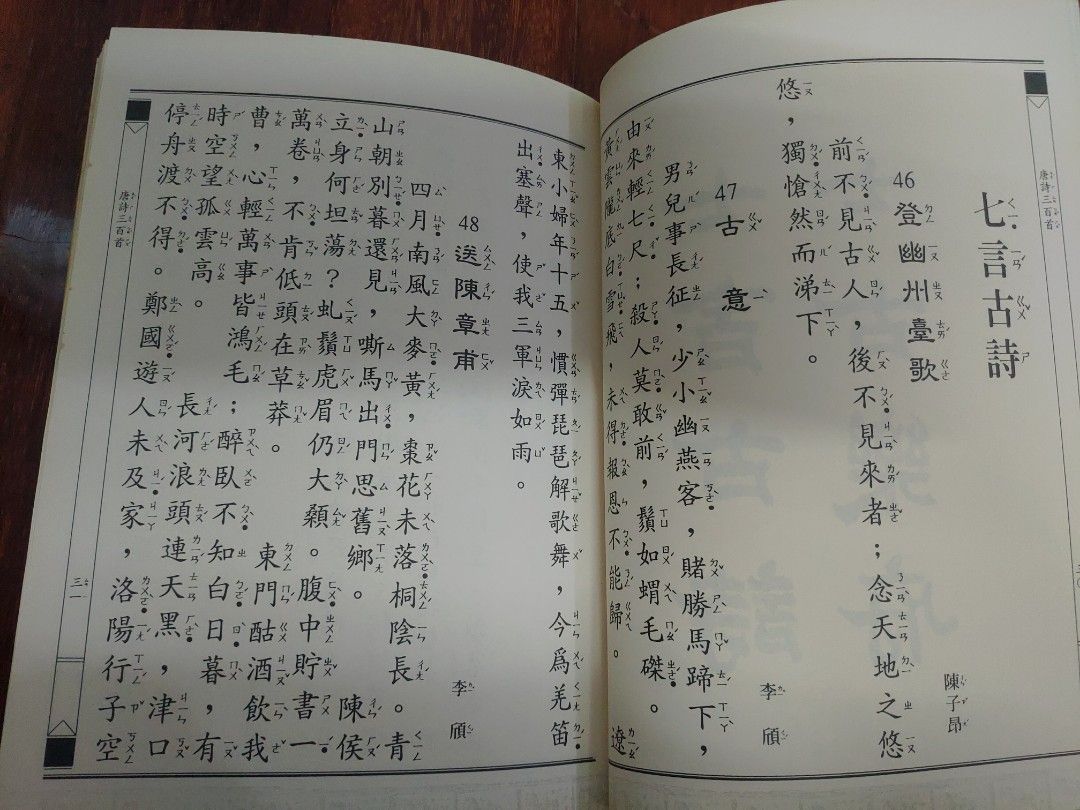 唐詩三百首
七言古詩
46 登幽州臺歌 陳子昂
前不見古人，後不見來者；念天地之悠
悠，獨愴然而涕下。
47 古意 李頎
男兒事長征，少小幽燕客，賭勝馬蹄下，
由來輕七尺；殺人莫敢前，鬚如蝟毛磔。
黃雲隴底白雪飛，未得報恩不能歸。遼
東小婦年十五，慣彈琵琶解歌舞，今爲羌笛
出塞聲，使我三軍淚如雨。
48 送陳章甫 李頎
四月南風大麥黃，棗花未落桐陰長。青
山朝別暮還見，嘶馬出門思舊鄉。陳侯
立身何坦蕩？虬鬚虎眉仍大顙。腹中貯書一
萬卷，不肯低頭在草莽。東門酤酒飲我
曹，心輕萬事皆鴻毛；醉臥不知白日暮，有
時空望孤雲高。長河浪頭連天黑，津口
停舟渡不得。鄭國遊人未及家，洛陽行子空
唐詩三百首
三一